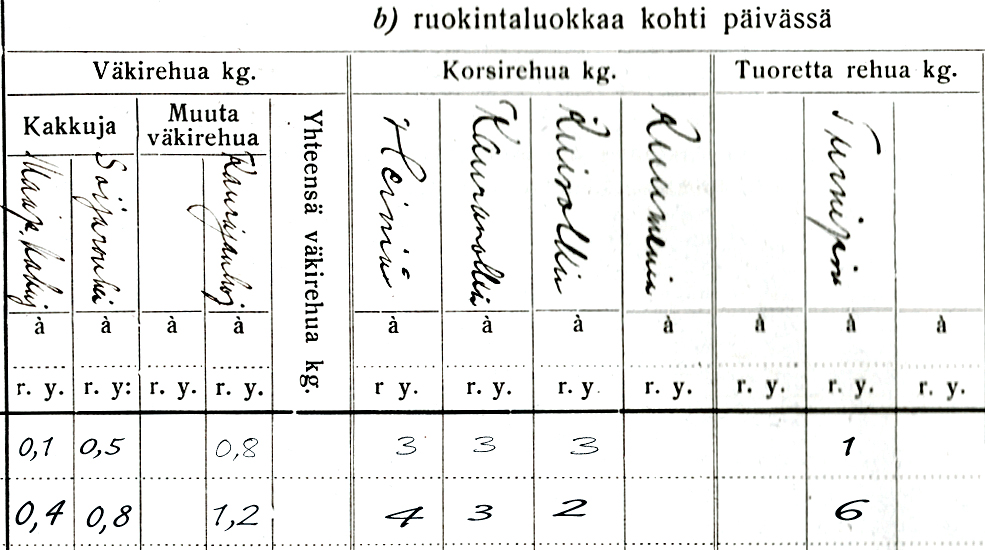 b) ruokintaluokkaa kohti päivässä
Väkirehua kg. Korsirehua kg. Tuoretta rehua kg.
Kakkuja Muuta väkirehua Yhteensä väkirehua kg.
Soijarouhei Kaurajauhoj Heiniä Kauranolkia Ruisolkia Ruumenia Turnipsia
à à à à à à à à à à à
r. y. r. y: r. y. r. y. r y. r. y. r. y. r. y. r. y. r. y. r. y.
0,1 0,5 0,8 3 3 3 1
0,4 0,8 1,2 4 3 2 6